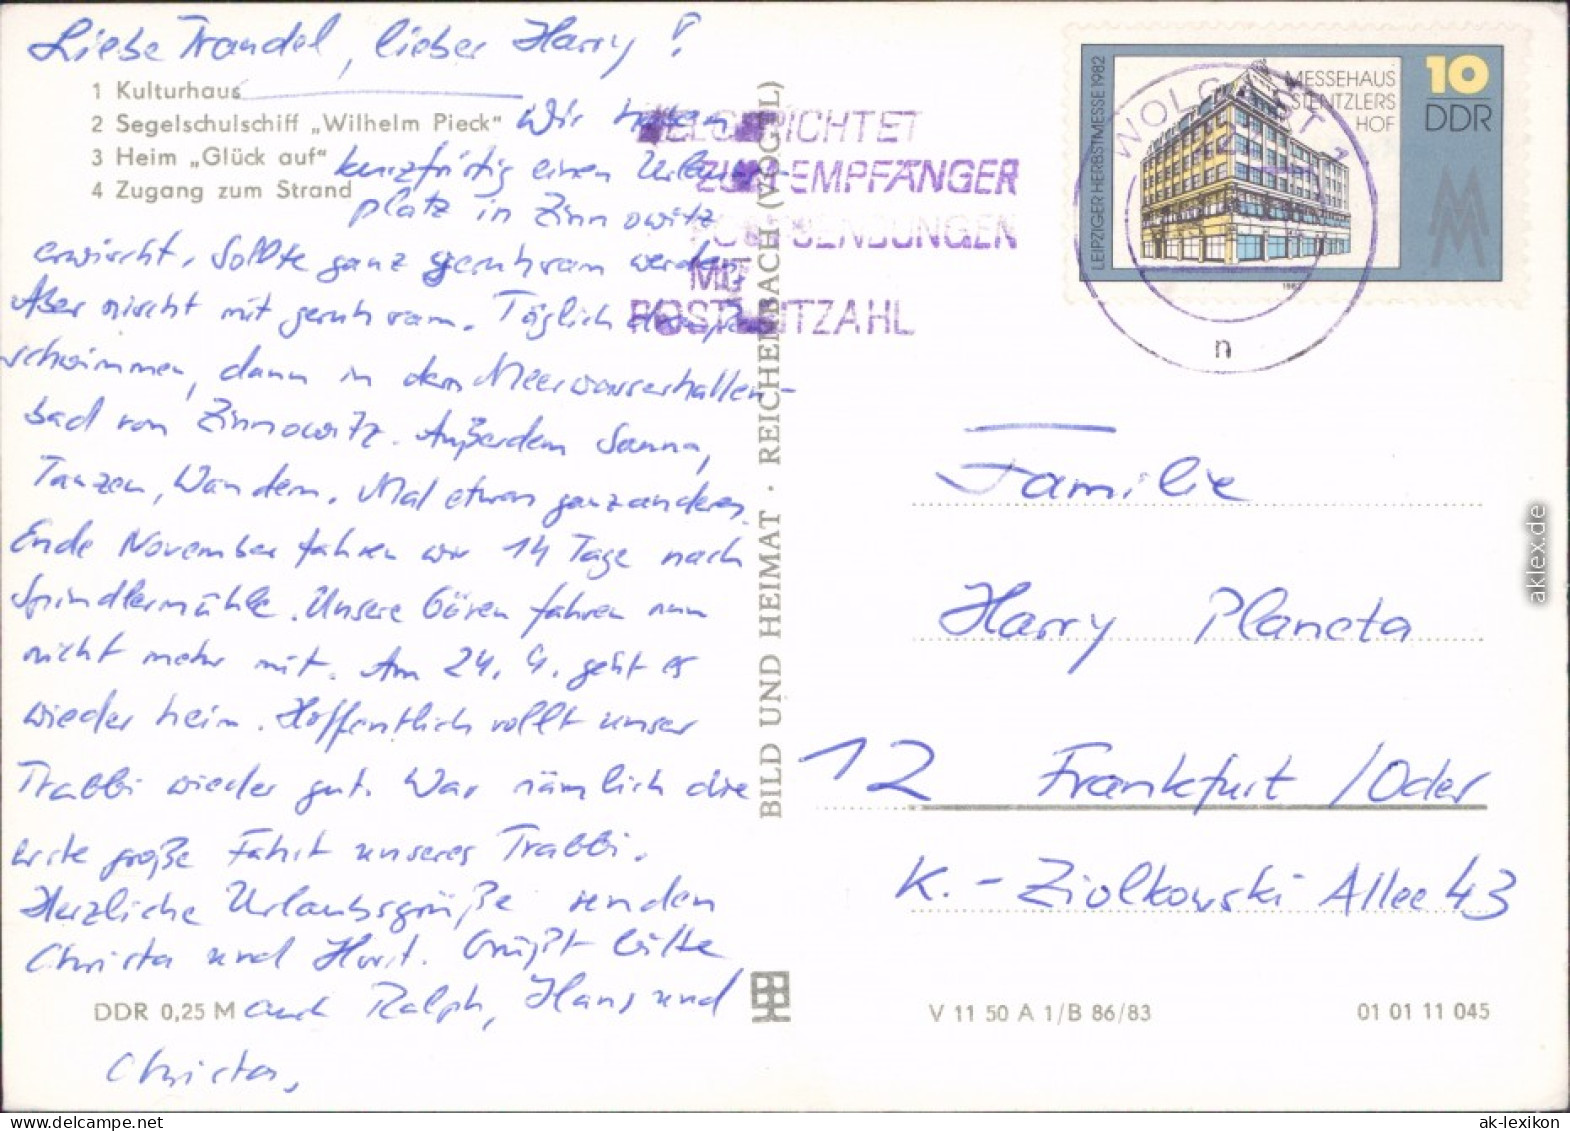 Liebe Traudel, lieber Harry!
1 Kulturhaus
2 Segelschulschiff „Wilhelm Pieck"
3 Heim „Glück auf"
4 Zugang zum Strand
Wir haben
kurzfristig einen Urlaubs-
platz in Zinnowitz
erwischt. Sollte ganz geruhsam werden.
Aber nischt mit geruhsam. Täglich
schwimmen, dann in dem Meerwasserhallen-
bad von Zinnowitz. Außerdem Sauna,
Tanzen, Wandern. Mal etwas ganz anderes.
Ende November fahren wir 14 Tage nach
Spindlermühle. Unsere Gören fahren nun
nicht mehr mit. Am 24. 9. geht es
wieder heim. Hoffentlich rollt unser
Trabbi wieder gut. War nämlich die
erste große Fahrt unseres Trabbi.
Herzliche Urlaubsgrüße senden
Christa und Horst. Grüßt bitte
auch Ralph, Hans und
Christa.
DDR 0,25 M
BILD UND HEIMAT · REICHENBACH (VOGTL)
ZIELGERICHTET
ZUM EMPFÄNGER
POSTSENDUNGEN
MIT
POSTLEITZAHL
WOLGAST 1
n
LEIPZIGER HERBSTMESSE 1982
MESSEHAUS
STENTZLERS
HOF
10
DDR
MM
1982
Familie
Harry Planeta
12 Frankfurt /Oder
K.-Ziolkowski Allee 43
V 11 50 A 1/B 86/83
01 01 11 045
aklex.de
ak-lexikon